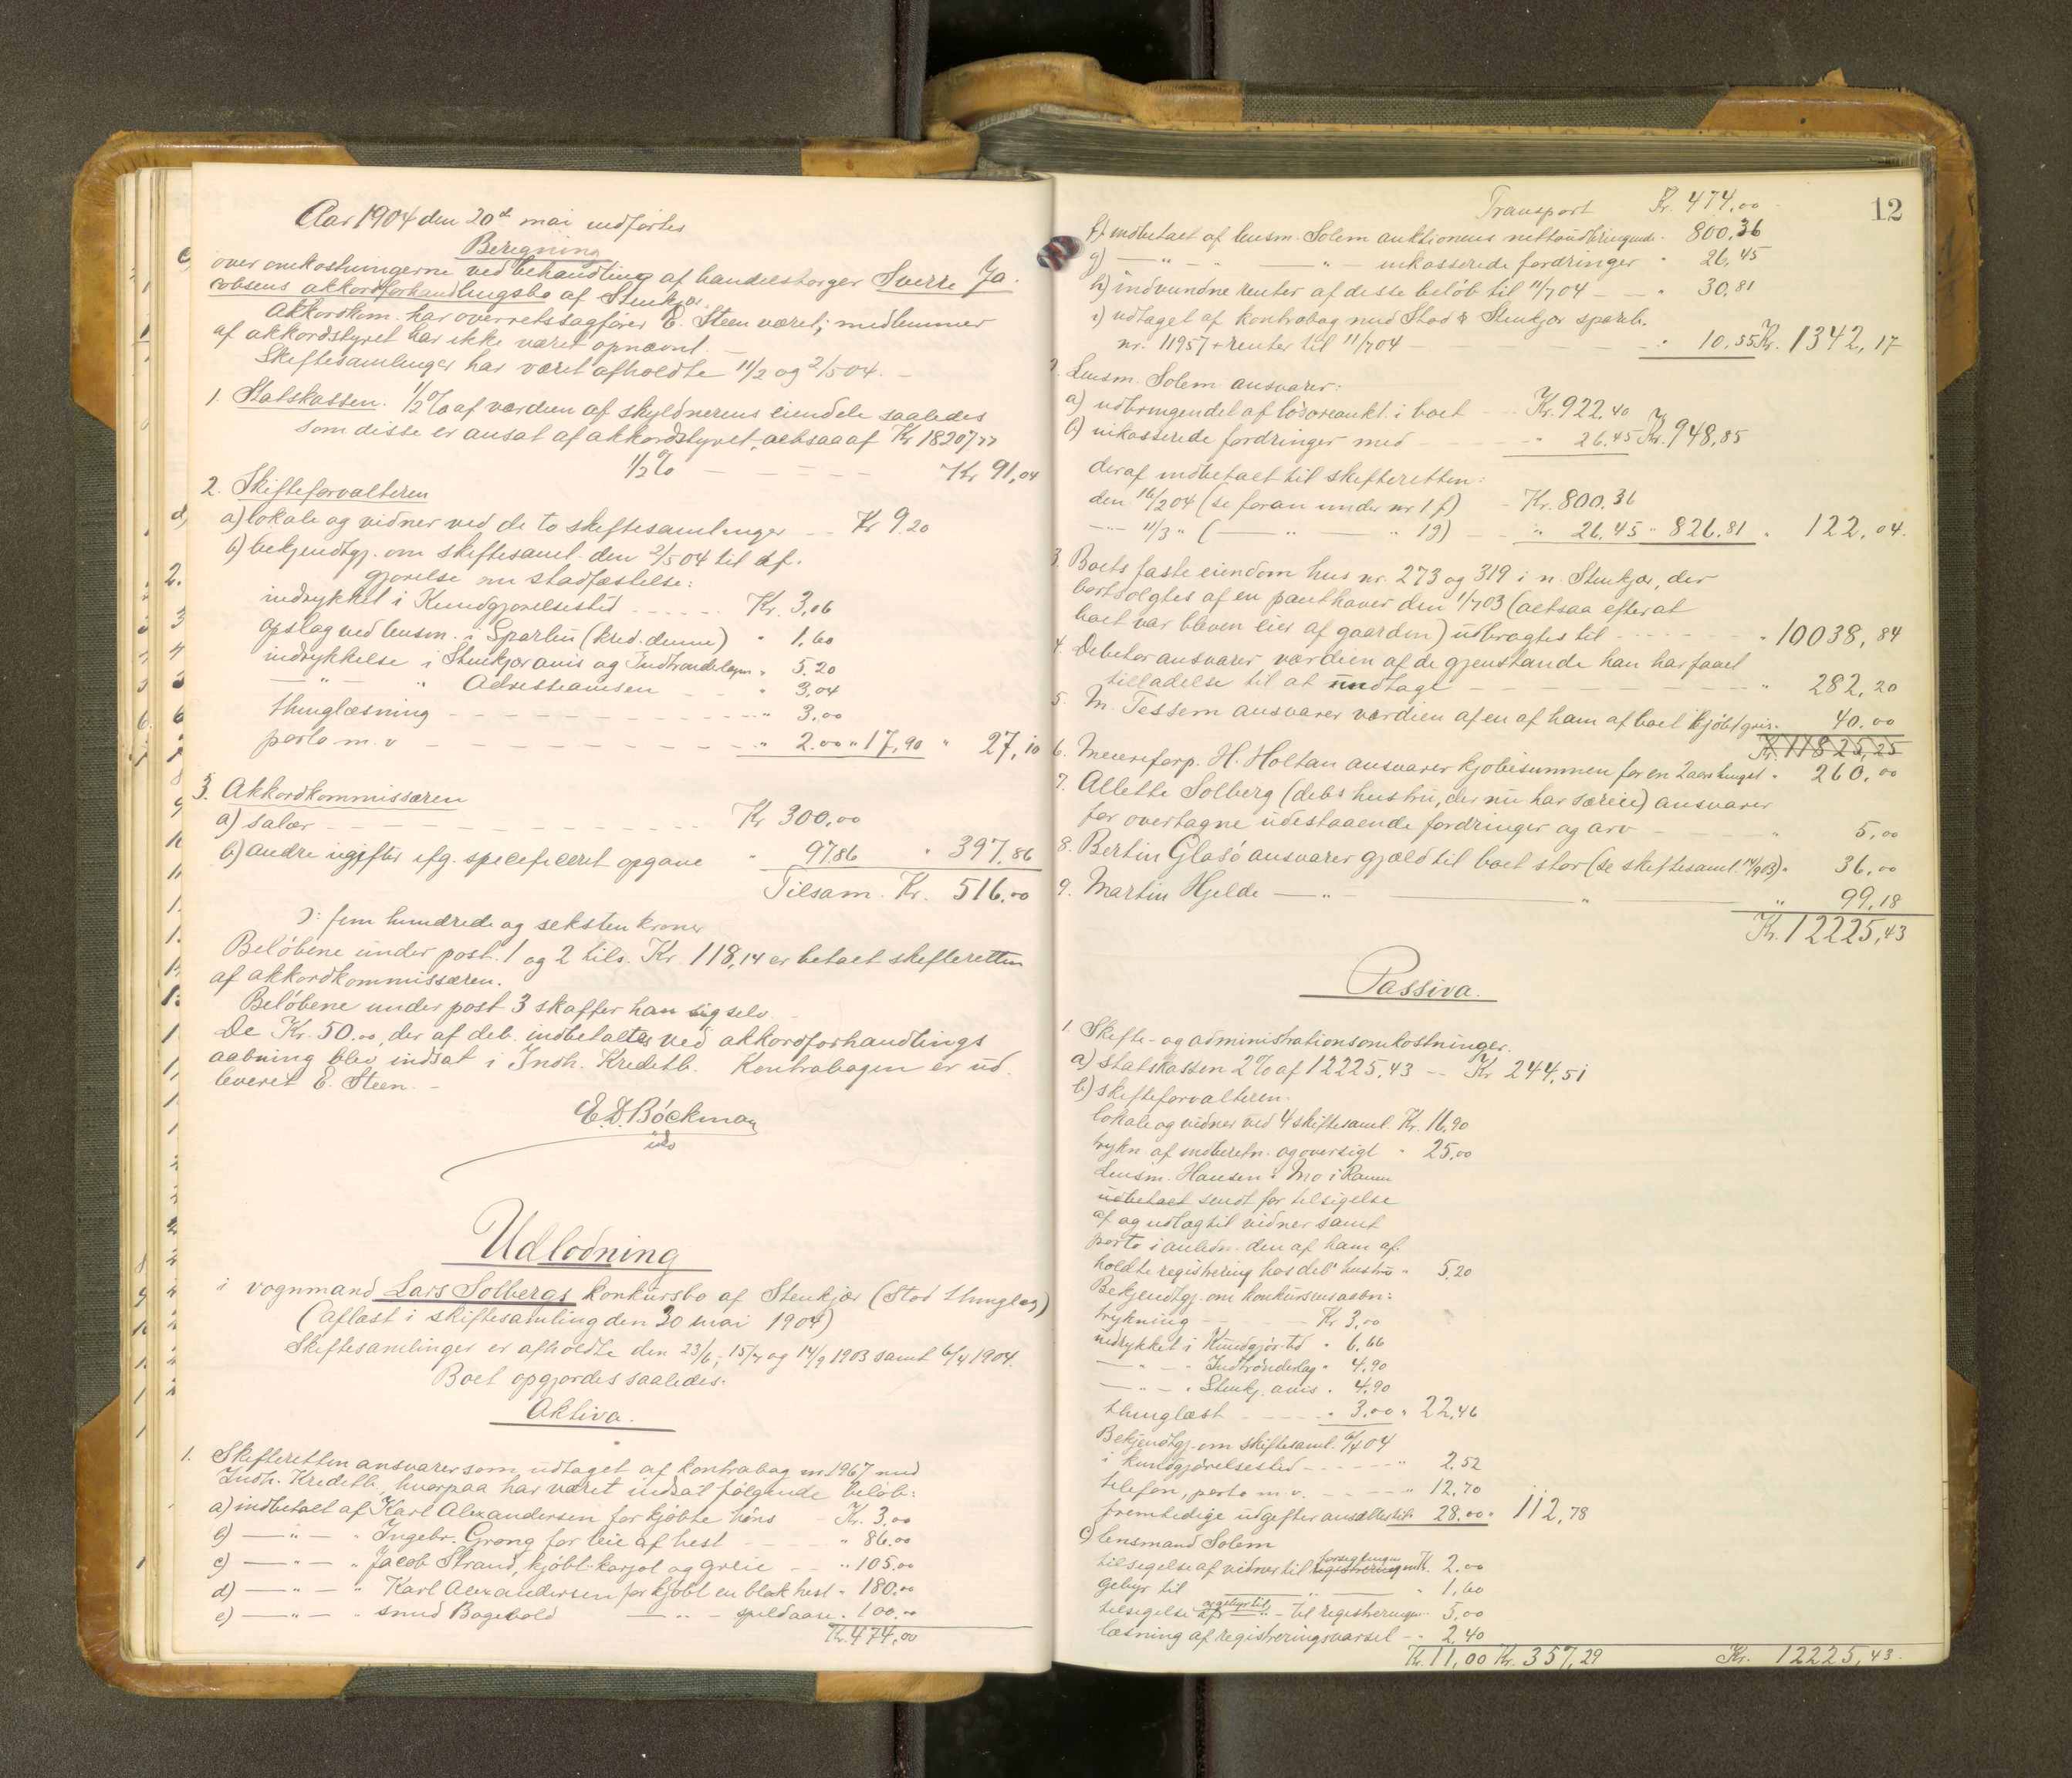 Aar 1904 den 20de mai udførtes
Beregning
over omkostningerne ved behandling af handelsborger Sverre Ja-
cobsens akkordforhandlingsbo af Stenkjær.
Akkordkom. har overretssagfører E. Steen været; medlemmer
af akkordstyret har ikke været opnævnt. –
Skiftesamlinger har været afholdte 11/2 og 2/5 04. –
1. Statskassen. 1/2 % af værdien af skyldnerens eiendele saaledes
som disse er ansat af akkordstyret, altsaa af Kr 18207,77
1/2 % – – – – – Kr 91,04
2. Skifteforvalteren
a) lokale og vidner ved de to skiftesamlinger – – Kr 9.20
b) bekjendtgj. om skiftesaml. den 2/5 04 til af-
gjørelse om stadfæstelse:
indrykket i Kundgjørelsestid – – – – Kr. 3,06
opslag ved lensm. i Sparbu (kred. denne) " 1,60
indrykkelse i Stenkjær avis og Indtrøndelagen " 5.20
– " – " Adresseavisen – – " 3,04
thinglæsning – – – – – – – – " 3,00
porto m. v – – – – – – – – " 2.00 " 17,90 " 27,10
3. Akkordkommissæren
a) salær – – – – – – – – Kr 300,00
b) andre ugifter ifg. specificeret opgave " 97.86 " 397,86
Tilsam. Kr. 516,00
ɔ: fem hundrede og seksten kroner
Beløbene under post. 1 og 2 tils. Kr. 118,14 er betalt skifteretten
af akkordkommissæren.
Beløbene under post 3 skaffer han sig selv. –
De Kr. 50.00, der af deb. indbetaltes ved akkordforhandlings
aabning blev indsat i Indh. Kreditb. Kontrabogen er ud-
leveret E. Steen. –
E. D. Bøckman
Udlodning
i vognmand Lars Solbergs konkursbo af Stenkjær (Stod thinglag)
(aflæst i skiftesamling den 20 mai 1904)
Skiftesamlinger er afholdte den 23/6, 15/7 og 14/9 1903 samt 6/4 1904.
Boet opgjordes saaledes:
Aktiva.
1. Skifteretten ansvarer som udtaget af kontrabog nr 1967 med
Indh. Kreditb., hvorpaa har været indsat følgende beløb:
a) indbetalt af Karl Alexandersen for kjøbte høns – Kr. 3,00
b) – " – " Ingebr. Grong for leie af hest – – – " 86.00
c) – " – " Jacob Strand, kjøbt karjol og greie – – " 105,00
d) – " – " Karl Alexandersen for kjøbt en blak hest " 180.00
e) – " – " smed Bogebold – " – spildaare " 100.00
Kr. 474,00
12
Transport Kr. 474,00
f) indbetalt af lensm. Solem auktionens nettoudbringende " 800,36
g) – " – " – " – inkasserede fordringer " 26,45
h) indvundne renter af disse beløb til 11/7 04 – – " 30,81
i) udtaget af kontrabog med Stod & Stenkjær spareb.
nr. 11957 + renter til 11/7 04 – – – – – " 10,55 Kr. 1342,17
2. Lensm. Solem ansvarer:
a) udbringendet af løsøreaukt. i boet – – Kr. 922,40
b) inkasserede fordringer med – – – – " 26,45 Kr. 948,85
deraf indbetalt til skifteretten:
den 16/2 04 (se foran under nr 1 f) – Kr. 800,36
– " 11/3 " ( – " – " 1 g) – – " 26,45 " 826,81 " 122,04.
3. Boets faste eiendom hus nr. 273 og 319 i n. Stenkjær, der
bortsolgtes af en panthaver den 1/7 03 (altsaa efter at
boet var bleven eier af gaarden) udbragtes til – – – " 10038,84
4. Debitor ansvarer værdien af de gjenstande han har faaet
tilladelse til at undtage – – – – – – – " 282,20
5. M. Tessem ansvarer værdien af en af ham af boet kjøbt gris " 40.00
Kr. 11825,25
6. Meieriforp. H. Holtan ansvarer kjøbesummen for en 2 aars hingst " 260,00
7. Allette Solberg (debs hustru, der nu har særeie) ansvarer
for overtagne udestaaende fordringer og arv – – – " 5,00
8. Bertin Glasø ansvarer gjæld til boet stor (se skiftesaml. 14/9 03) " 36,00
9. Martin Hjelde – " – – " – " 99,18
Kr. 12225,43
Passiva.
1. Skifte- og administrationsomkostninger.
a) statskassen 2 % af 12225,43 – – Kr 244,51
b) skifteforvalteren.
lokale og vidner ved 4 skiftesaml. Kr. 16,90
trykn. af indberetn. og oversigt " 25,00
Lensm. Hansen i Mo i Ranen
udbetalt sendt for tilsigelse
af og udlag til vidner samt
porto i anledn. den af ham af-
holdte registrering hos debs hustru " 5,20
Bekjendtgj. om konkursens aabn:
trykning – – – Kr 3,00
indrykket i Kundgjør. tid " 6,66
– " – " Indtrønderlag " 4,90
– " – " Stenkj. avis " 4.90
thinglæst – – – " 3,00 " 22,46
Bekjendtgj. om skiftesaml. 6/4 04
i kundgjørelsestid – – – – " 2,52
telefon, porto m. v. – – – – " 12,70
fremtidige udgifter ansættes til " 28.00 " 112,78
c) lensmand Solem
tilsigelse af vidner til registreringen forseglingen Kr. 2,00
gebyr til – " – " 1,60
tilsigelse af og gebyr til – " – til registreringen " 5,00
læsning af registreringsvarsel – " 2,40
Kr. 11,00 Kr. 357,29 Kr. 12225,43.